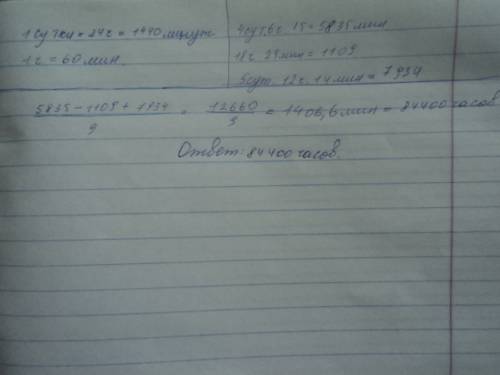 1 сутки = 24 ч = 1440 минут
1 ч = 60 мин.
4 сут. 6 ч. 15 = 5835 мин
18 ч. 29 мин = 1109
5 сут. 12 ч. 14 мин = 7934
5835 - 1109 + 7934 / 9 = 12660 / 9 = 1406,6 мин = 84400 часов
Ответ: 84400 часов.